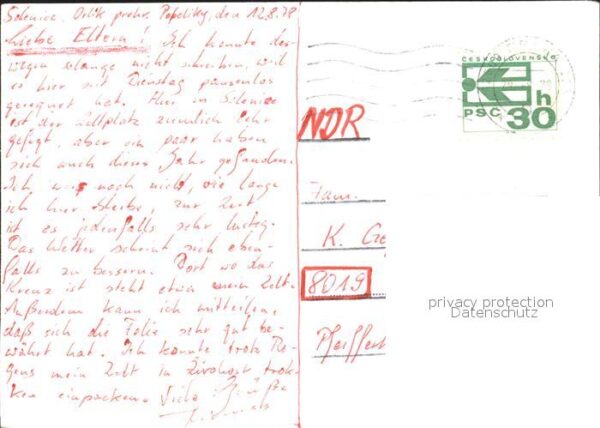 Solenice, Orlík prehr. Popelíky, den 12.8.78
Liebe Eltern! Ich konnte des-
wegen solange nicht schreiben, weil
es hier seit Dienstag pausenlos
geregnet hat. Hier in Solenice
ist der Zeltplatz ziemlich sehr
gefegt, aber ein paar haben
sich auch dieses Jahr gefunden.
Ich weis noch nicht, wie lange
ich hier bleibe, zur Zeit
ist es jedenfalls sehr lustig.
Das Wetter scheint sich eben-
falls zu bessern. Dort wo das
Kreuz ist steht etwa mein Zelt.
Außerdem kann ich mitteilen,
daß sich die Folie sehr gut be-
währt hat. Ich konnte trotz Re-
gens mein Zelt in Živohošť trok-
ken einpacken. Viele Grüße
ČESKOSLOVENSKO
h
PSČ 30
NDR
Fam.
K. Ge
8019
Pfeiffer
privacy protection
Datenschutz